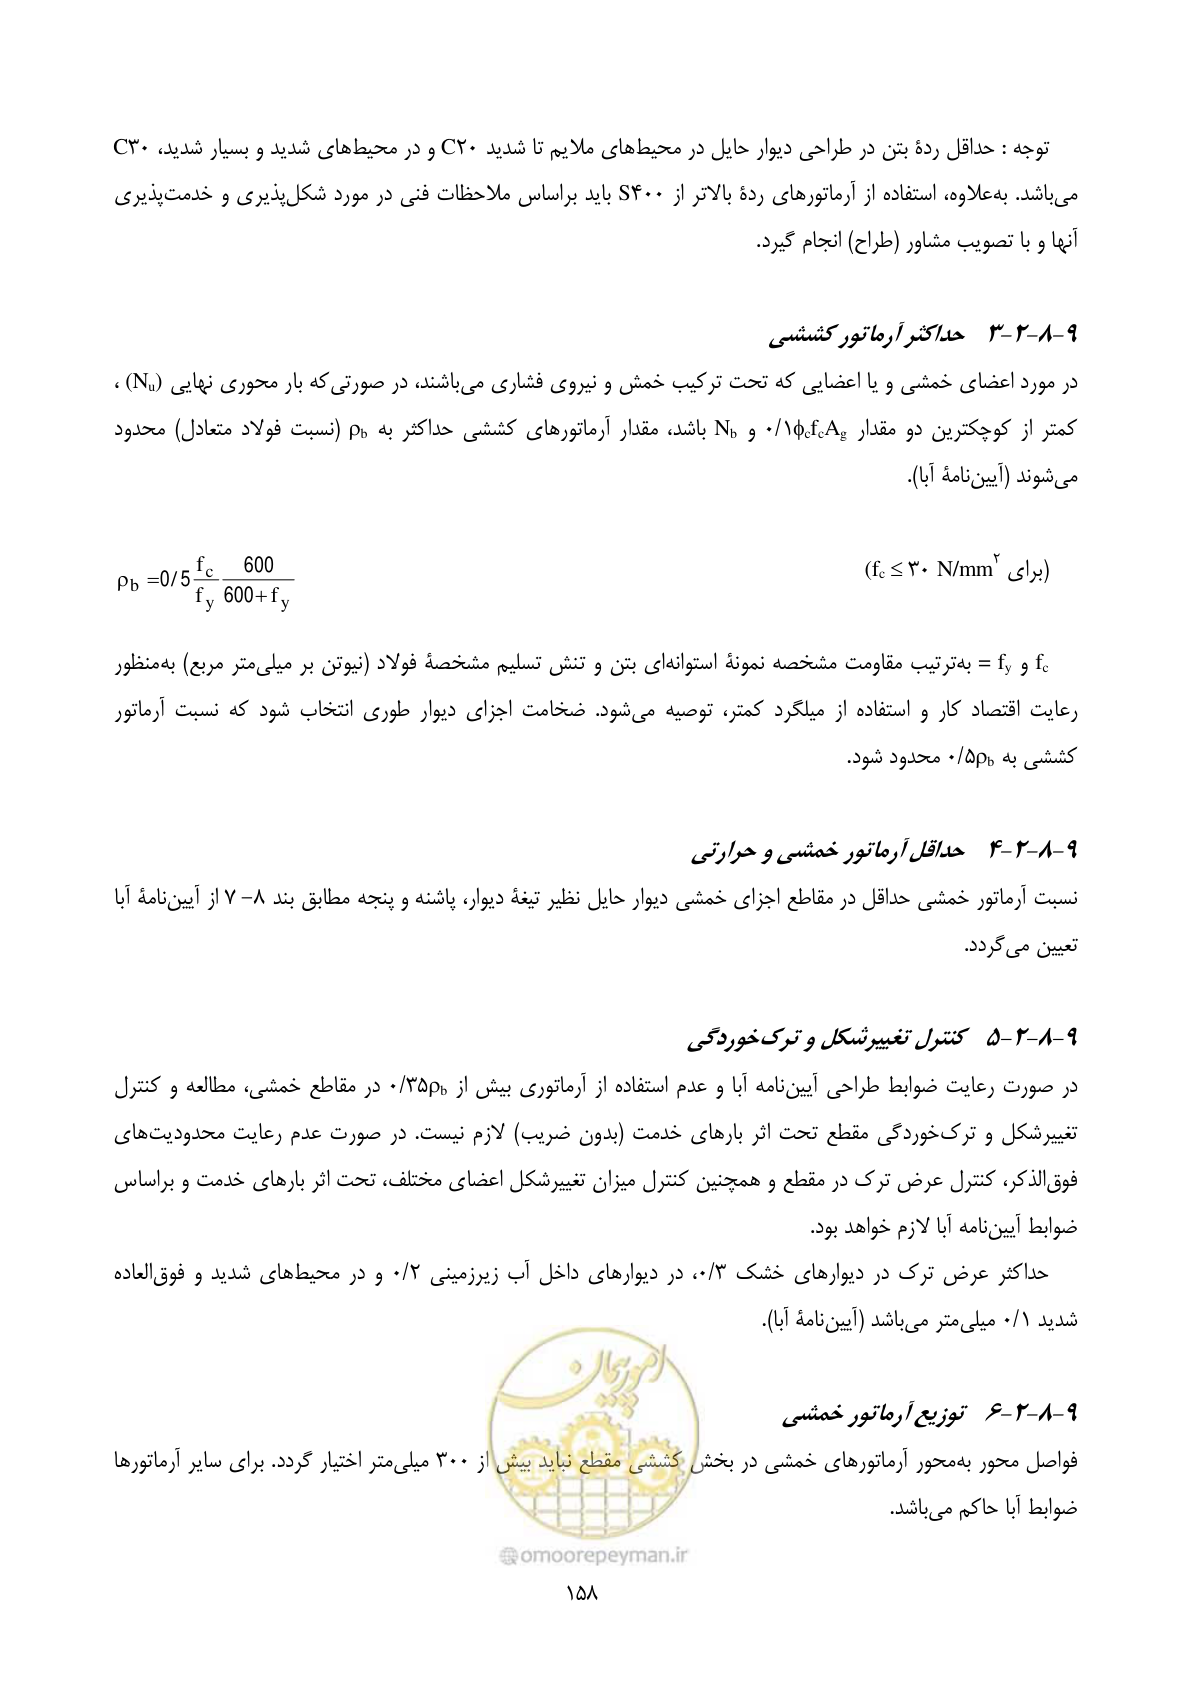 توجه : حداقل ردۀ بتن در طراحی دیوار حایل در محیط‌های ملایم تا شدید C۲۰ و در محیط‌های شدید و بسیار شدید، C۳۰
می‌باشد. به‌علاوه، استفاده از آرماتورهای ردۀ بالاتر از S۴۰۰ باید براساس ملاحظات فنی در مورد شکل‌پذیری و خدمت‌پذیری
آنها و با تصویب مشاور (طراح) انجام گیرد.
۹-۸-۲-۳ حداکثر آرماتور کششی
در مورد اعضای خمشی و یا اعضایی که تحت ترکیب خمش و نیروی فشاری می‌باشند، در صورتی‌که بار محوری نهایی (Nu) ،
کمتر از کوچکترین دو مقدار ۰/۱ϕcfcAg و Nb باشد، مقدار آرماتورهای کششی حداکثر به ρb (نسبت فولاد متعادل) محدود
می‌شوند (آیین‌نامۀ آبا).
(برای fc ≤ ۳۰ N/mm²)
ρb =0/5 fc/fy 600/(600+fy)
fc و fy = به‌ترتیب مقاومت مشخصه نمونۀ استوانه‌ای بتن و تنش تسلیم مشخصۀ فولاد (نیوتن بر میلی‌متر مربع) به‌منظور
رعایت اقتصاد کار و استفاده از میلگرد کمتر، توصیه می‌شود. ضخامت اجزای دیوار طوری انتخاب شود که نسبت آرماتور
کششی به ۰/۵ρb محدود شود.
۹-۸-۲-۴ حداقل آرماتور خمشی و حرارتی
نسبت آرماتور خمشی حداقل در مقاطع اجزای خمشی دیوار حایل نظیر تیغۀ دیوار، پاشنه و پنجه مطابق بند ۸- ۷ از آیین‌نامۀ آبا
تعیین می‌گردد.
۹-۸-۲-۵ کنترل تغییرشکل و ترک‌خوردگی
در صورت رعایت ضوابط طراحی آیین‌نامه آبا و عدم استفاده از آرماتوری بیش از ۰/۳۵ρb در مقاطع خمشی، مطالعه و کنترل
تغییرشکل و ترک‌خوردگی مقطع تحت اثر بارهای خدمت (بدون ضریب) لازم نیست. در صورت عدم رعایت محدودیت‌های
فوق‌الذکر، کنترل عرض ترک در مقطع و همچنین کنترل میزان تغییرشکل اعضای مختلف، تحت اثر بارهای خدمت و براساس
ضوابط آیین‌نامه آبا لازم خواهد بود.
حداکثر عرض ترک در دیوارهای خشک ۰/۳، در دیوارهای داخل آب زیرزمینی ۰/۲ و در محیط‌های شدید و فوق‌العاده
شدید ۰/۱ میلی‌متر می‌باشد (آیین‌نامۀ آبا).
امور پیمان
۹-۸-۲-۶ توزیع آرماتور خمشی
فواصل محور به‌محور آرماتورهای خمشی در بخش کششی مقطع نباید بیش از ۳۰۰ میلی‌متر اختیار گردد. برای سایر آرماتورها
ضوابط آبا حاکم می‌باشد.
@omoorepeyman.ir
۱۵۸